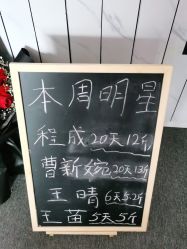 本周明星
程成20天12斤
曹新婉20天13斤
王晴6天5.2斤
王苗5天5斤